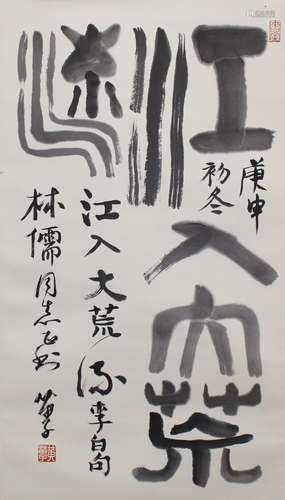 江入大荒
流
庚申
初冬
江入大荒流李白句
林儒同志正 苗子